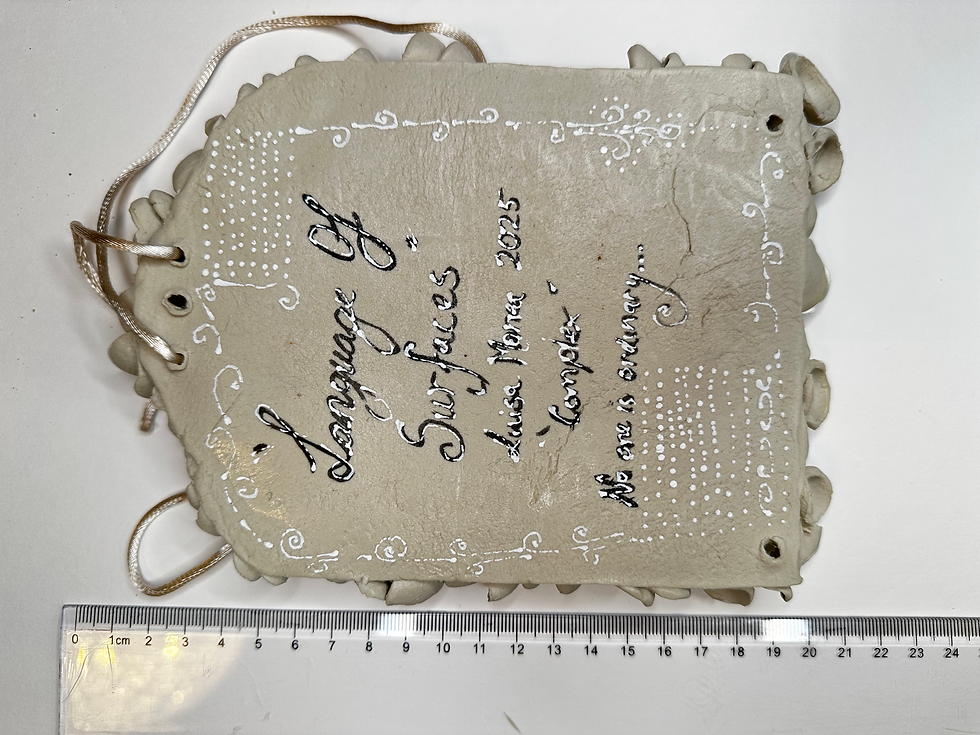 "Language Of
Surfaces"
Luisa 2025
"Complex"
No one is ordinary...
0 1cm 2 3 4 5 6 7 8 9 10 11 12 13 14 15 16 17 18 19 20 21 22 23 24